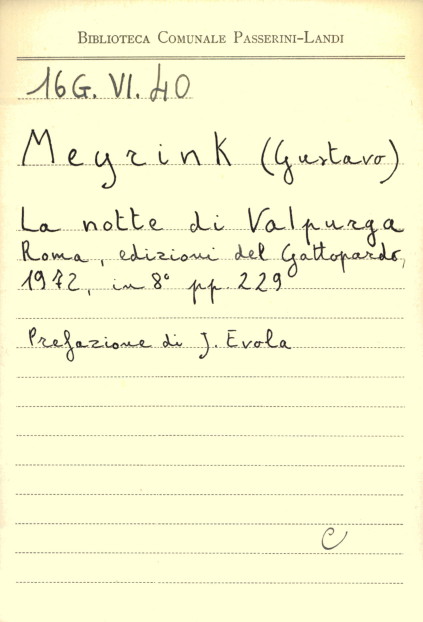 BIBLIOTECA COMUNALE PASSERINI-LANDI
16G. VI. 40
Meyrink (Gustavo)
La notte di Valpurga
Roma, edizioni del Gattopardo,
1972, in 8° pp. 229
Prefazione di J. Evola
C